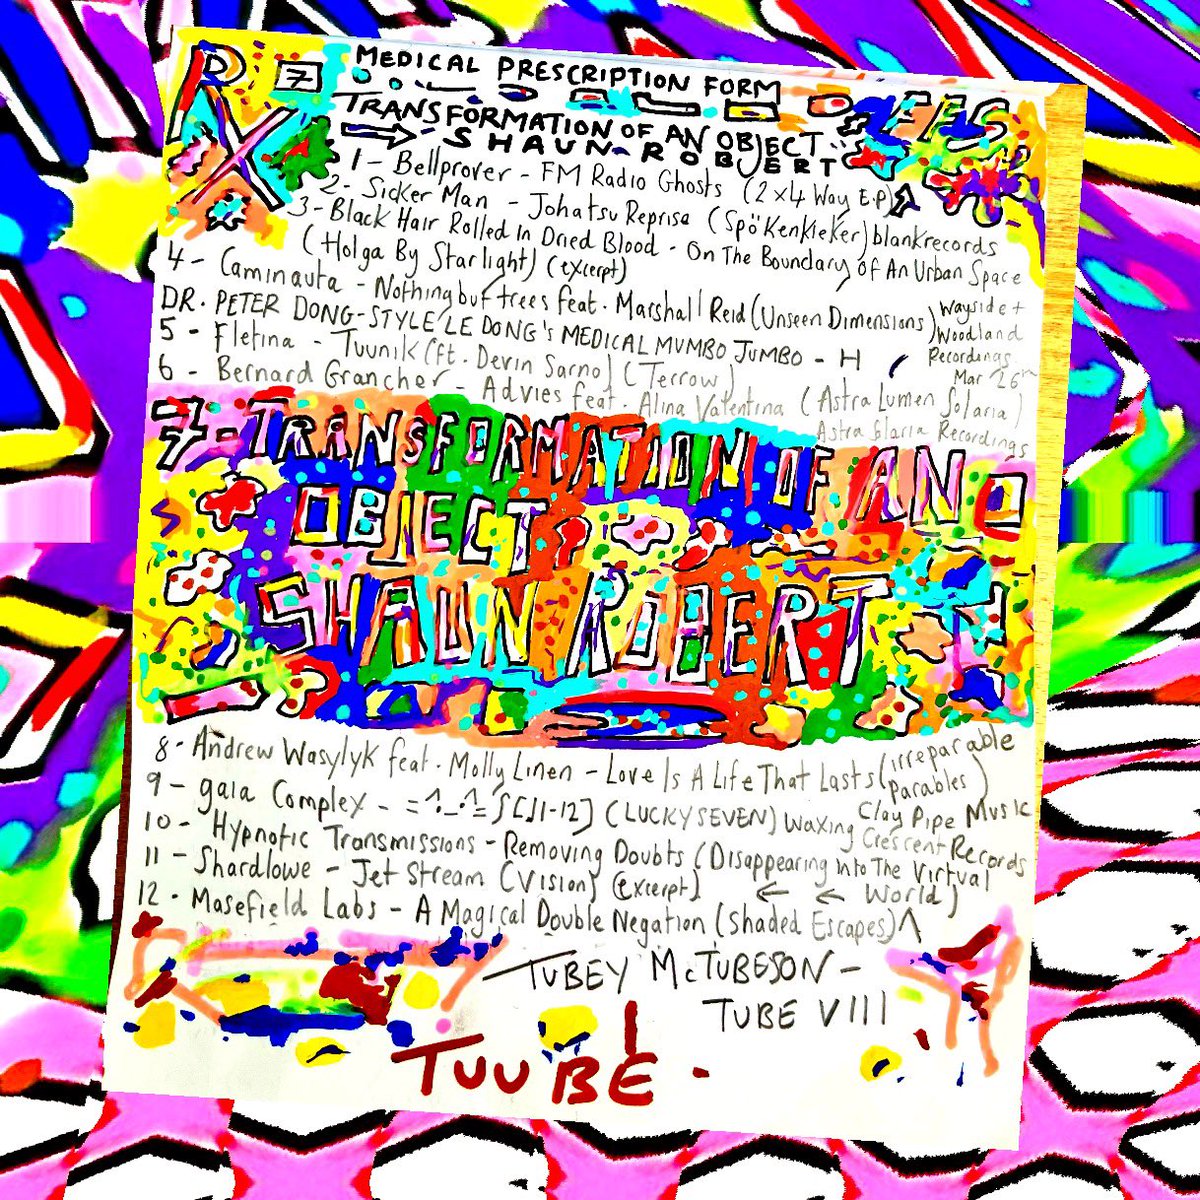 MEDICAL PRESCRIPTION FORM
DR 7
TRANSFORMATION OF AN OBJECT
SHAUN ROBERT
1 - Bellprover - FM Radio Ghosts (2x4 Way E.P)
2 - Sicker Man - Johatsu Reprise (Spökenkieker) blankrecords
3 - Black Hair Rolled In Dried Blood - On The Boundary Of An Urban Space
(Holga By Starlight) (excerpt)
4 - Caminauta - Nothing but trees feat. Marshall Reid (Unseen Dimensions) Wayside +
Woodland
Recordings
Mar 26th
DR. PETER DONG-STYLE'LE DONG'S MEDICAL MUMBO JUMBO - H
5 - Fletina - Tuunik (ft. Devin Sarno) (Terrow)
6 - Bernard Grancher - Advies feat. Alina Valentina (Astra Lumen Solaria)
Astra Solaria Recordings
7 - TRANSFORMATION OF AN
OBJECT
SHAUN ROBERT
8 - Andrew Wasylyk feat. Molly Linen - Love Is A Life That Lasts (irreparable
parables)
Clay Pipe Music
9 - gaia Complex - =^._.^= ∫ [J1-12] (LUCKYSEVEN) Waxing Crescent Records
10 - Hypnotic Transmissions - Removing Doubts (Disappearing Into The Virtual
World)
11 - Shardlowe - Jet Stream (Vision) (excerpt)
12 - Masefield Labs - A Magical Double Negation (Shaded Escapes)
TUBEY McTUBESON -
TUBE VIII
TUUBE -